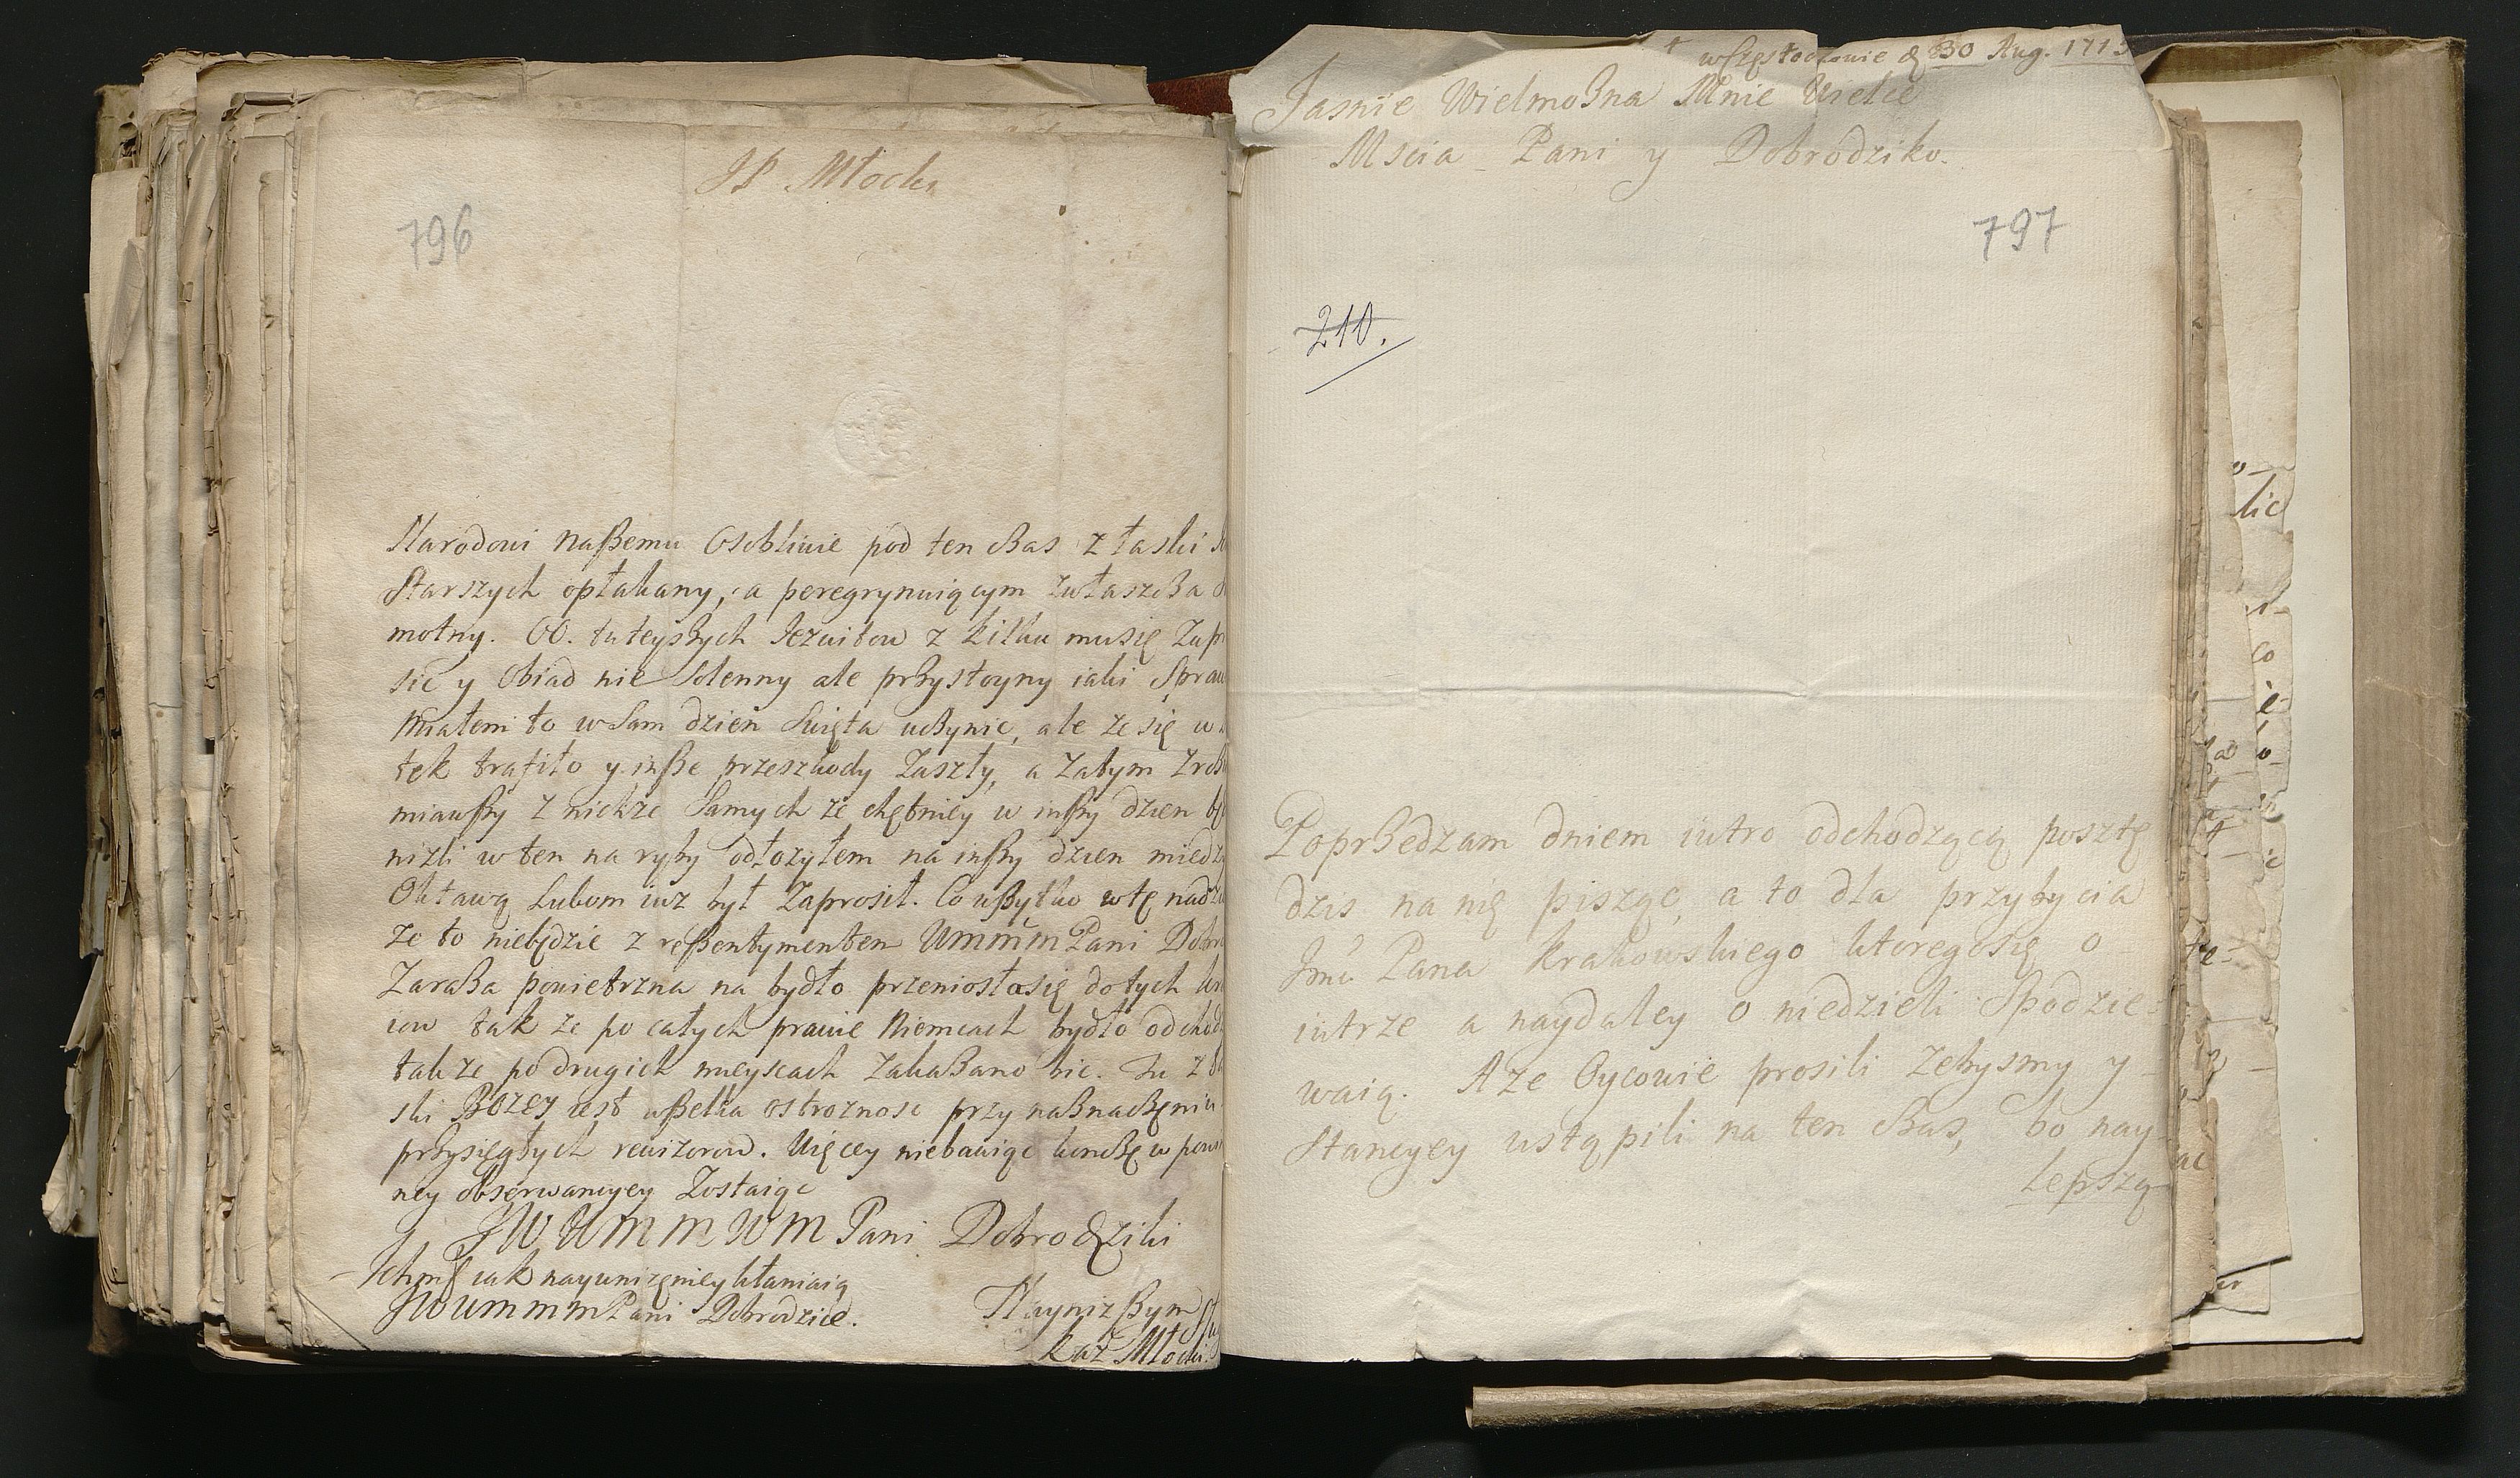 JP Młocki
796
Narodowi naßemu osobliwie pod ten cżas z łaski
Starszych opłakany, a peregrynuiącym zwłaszcża
motny. OO. tuteyßych Jezuitow z kilku muśię zapr
sić y obiad nie solenny ale przystoyny iaki spraw
Miałem to w sam dzień święta ucżynić, ale że się w
tek trafiło y inße przeszkody zaszły, a zatym zrozu
miawßy z nichże samych że chętniey w inßy dzien bę
niżli w ten na ryby odłożyłem na inßy dzien miedzy
Oktawą lubom iuż był zaprosił. Co wßytko w tę nadzi
że to niebędzie z reßentymentem Ummm Pani Dobro
Zaraża powietrzna na bydło przeniosła się do tych kra
iow tak że po całych prawie Niemcach bydło odchodz
takze po drugich mieyscach zakazano bić. Tu z Ła
ski BOZEY iest wßelka ostroznosc przy naznacżeniu
przysięgłych rewizorow. Więcey niebawiąc koncżę w powin
ney obserwancyey zostaiąc
JWWmmWm Pani Dobrodziki
Ichmć iak nayuniżeniey kłaniaią
JWummm Pani Dobrodzice.
Nayniżßym Słu
Kaz Młocki
w Częstochowie d 30 Aug. 1713
Jasnie Wielmożna Mnie Wielce
Mscia Pani y Dobrodziko.
797
210.
Poprzedzam dniem iutro odchodzącą posztę
dzis na nię pisząc, a to dla przybycia
Jmći Pana Krakowskiego ktoregosię o-
iutrze a naydaley o niedzieli spodzie-
waią. A że Oycowie prosili żebysmy y
stancyey ustąpili na ten cżas, bo nay-
lepszą